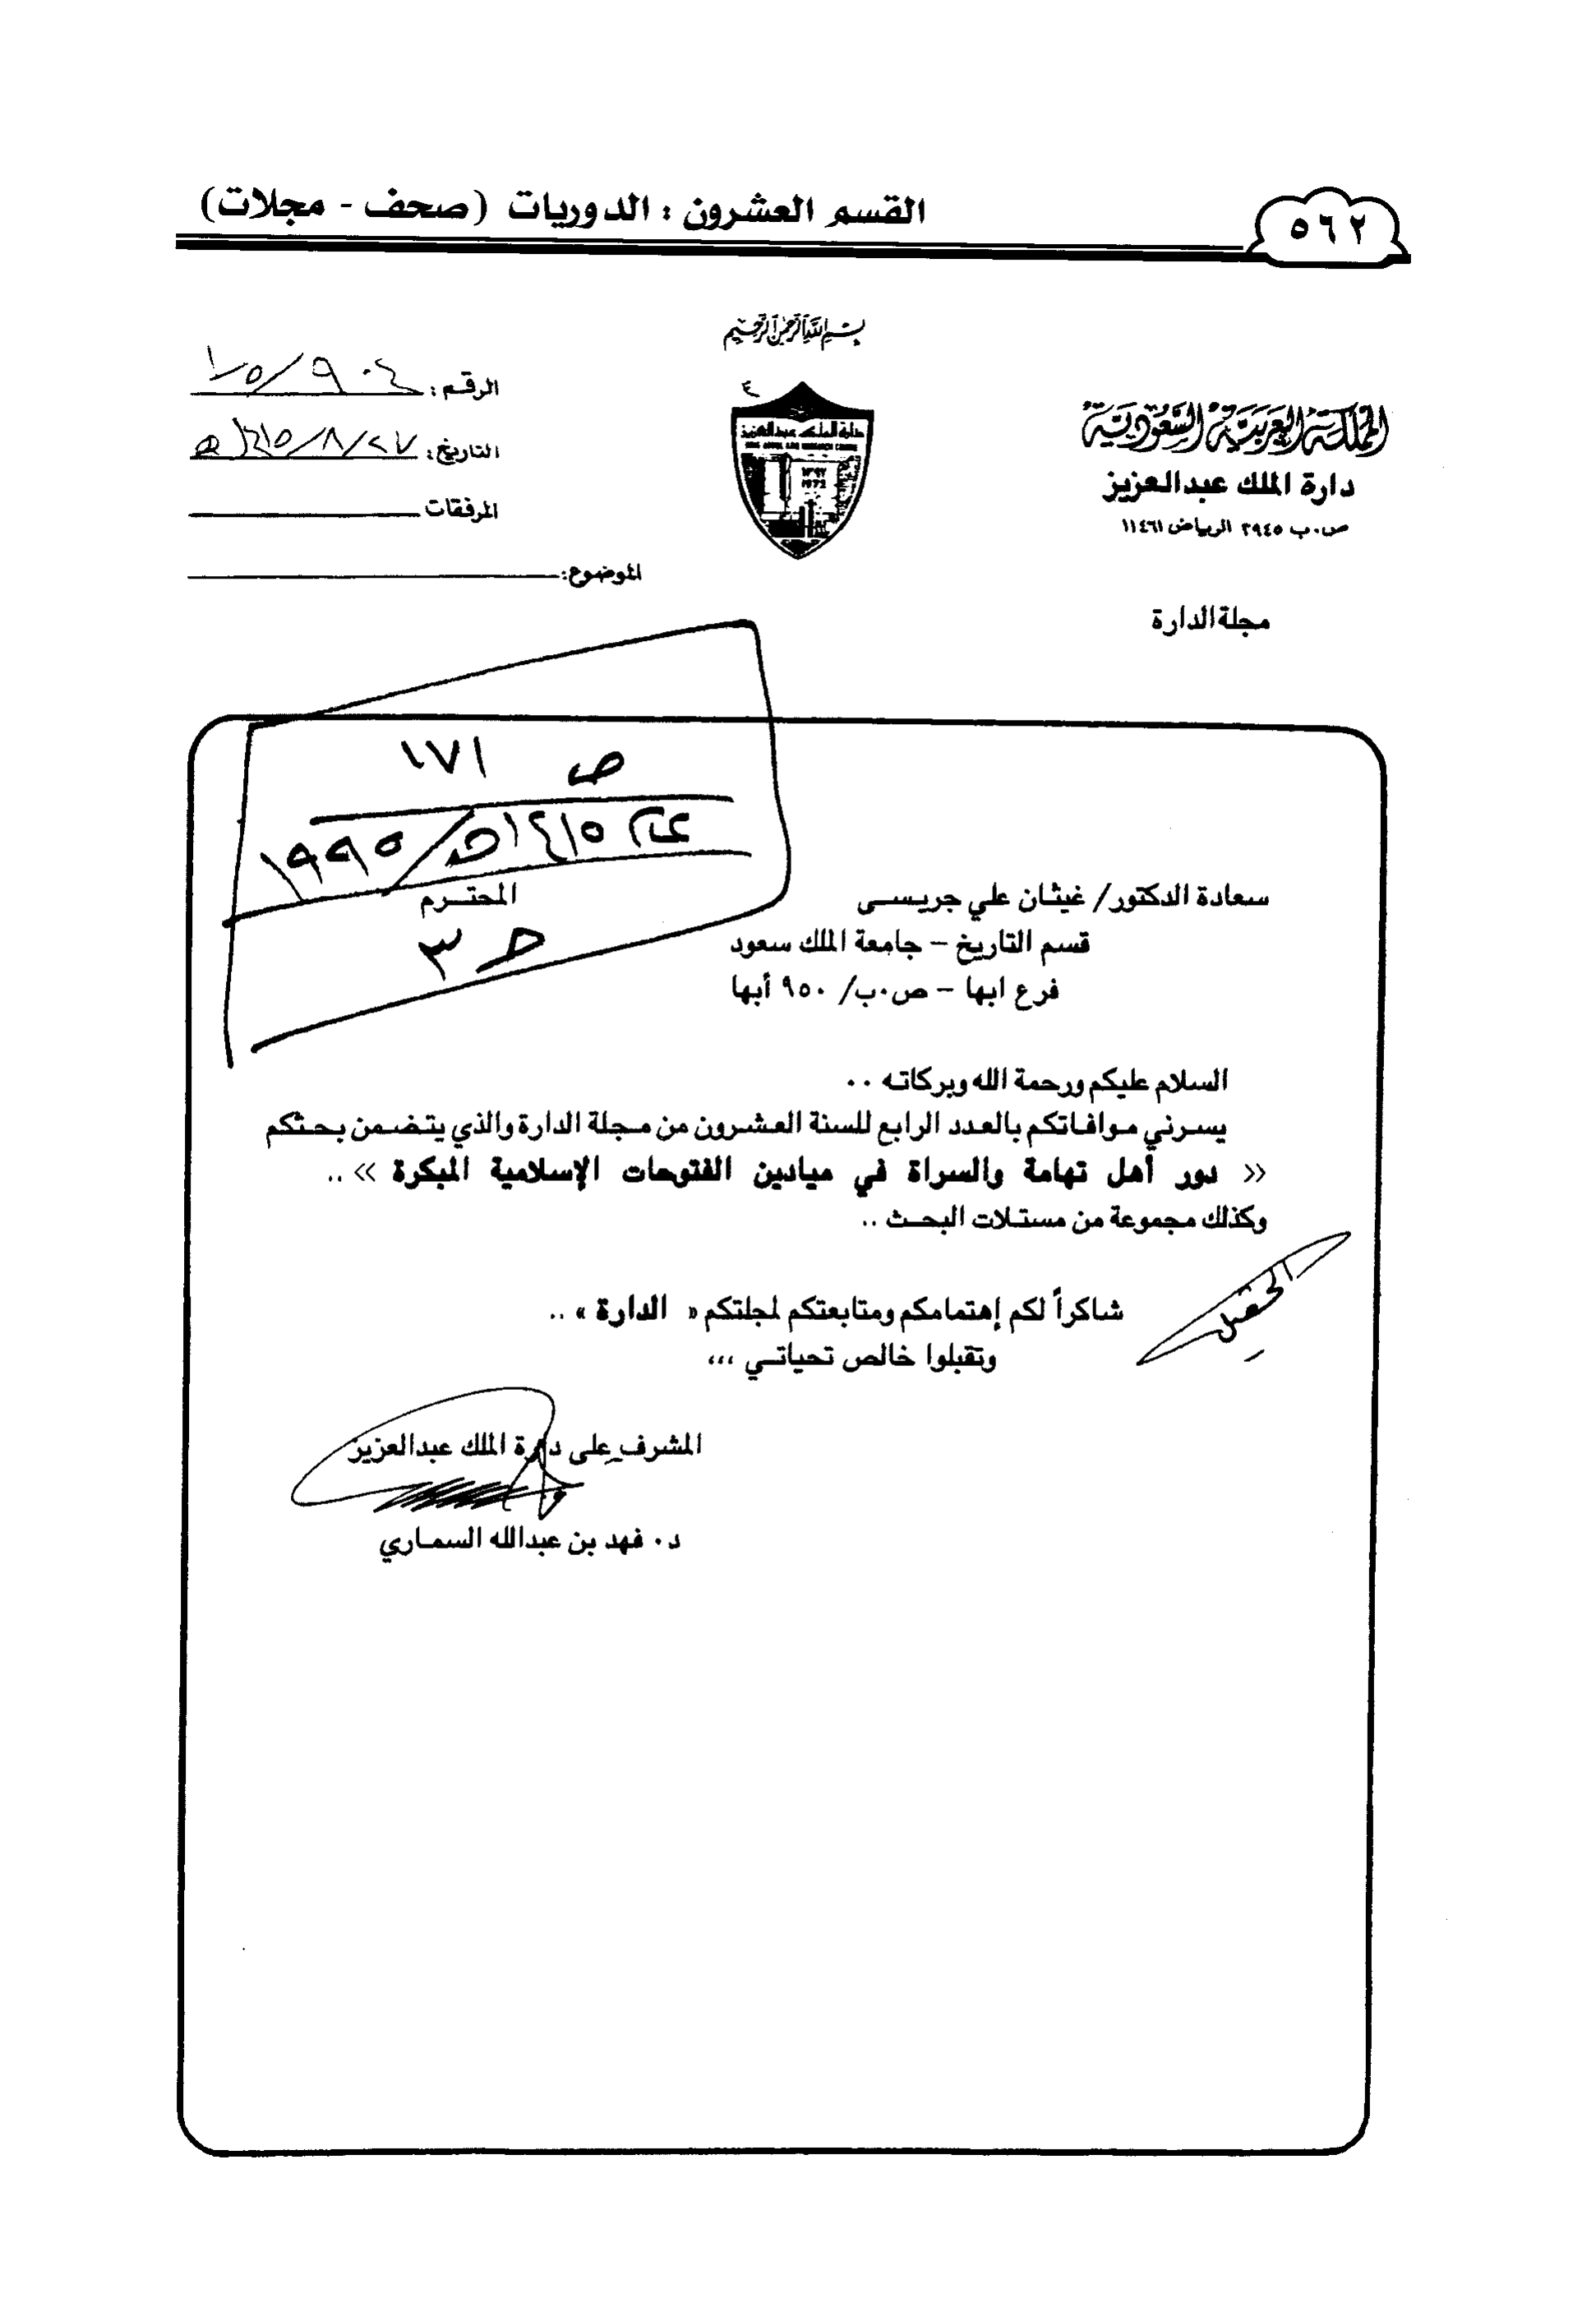 ٥٦٢
القسم العشرون : الدوريات (صحف - مجلات)
بسم الله الرحمن الرحيم
المملكة العربية السعودية
دارة الملك عبدالعزيز
ص٠ب ٢٩٤٥ الرياض ١١٤٦١
مجلة الدارة
دارة الملك عبدالعزيز
١٣٩٢
1972
الرقم :
التاريخ : ١٤١٥/٨/٢٧هـ
المرفقات
الموضوع:
ص ١٧١
عام ١٤١٥هـ/١٩٩٥
حـ ٣
سعادة الدكتور/ غيثان علي جريسى المحترم
قسم التاريخ – جامعة الملك سعود
فرع ابها – ص٠ب/ ٩٥٠ أبها
السلام عليكم ورحمة الله وبركاته ٠٠
يسرني موافاتكم بالعدد الرابع للسنة العشرون من مجلة الدارة والذي يتضمن بحثكم
« دور أهل تهامة والسراة في ميادين الفتوحات الإسلامية المبكرة » ..
وكذلك مجموعة من مستلات البحث ..
شاكراً لكم إهتمامكم ومتابعتكم لمجلتكم « الدارة » ..
وتقبلوا خالص تحياتي ،،،
المشرف على دارة الملك عبدالعزيز
د٠ فهد بن عبدالله السماري